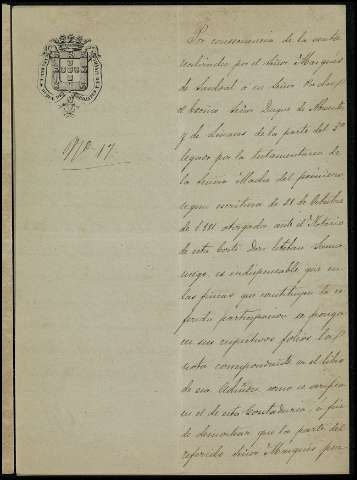 Nº 17.
Por consecuencia de la venta
realizada por el Señor Marques
de Sandoval a su Señor Padre,
el Excmo Señor Duque de Abrantes
y de Linares de la parte del 3º
legado por la testamentaria de
la Señora Madre del primero
segun escritura de 28 de Octubre
de 1881 otorgada ante el Notario
de esta Corte Don Esteban Samaniego
es indispensable que en
las fincas que constituyen la referida
participacion se ponga
en sus respectivos folios la
nota correspondiente en el libro
de esa Admon, como se verifica
en el de esta Contaduria, a fin
de demostrar que la parte del
referido Señor Marqués per-